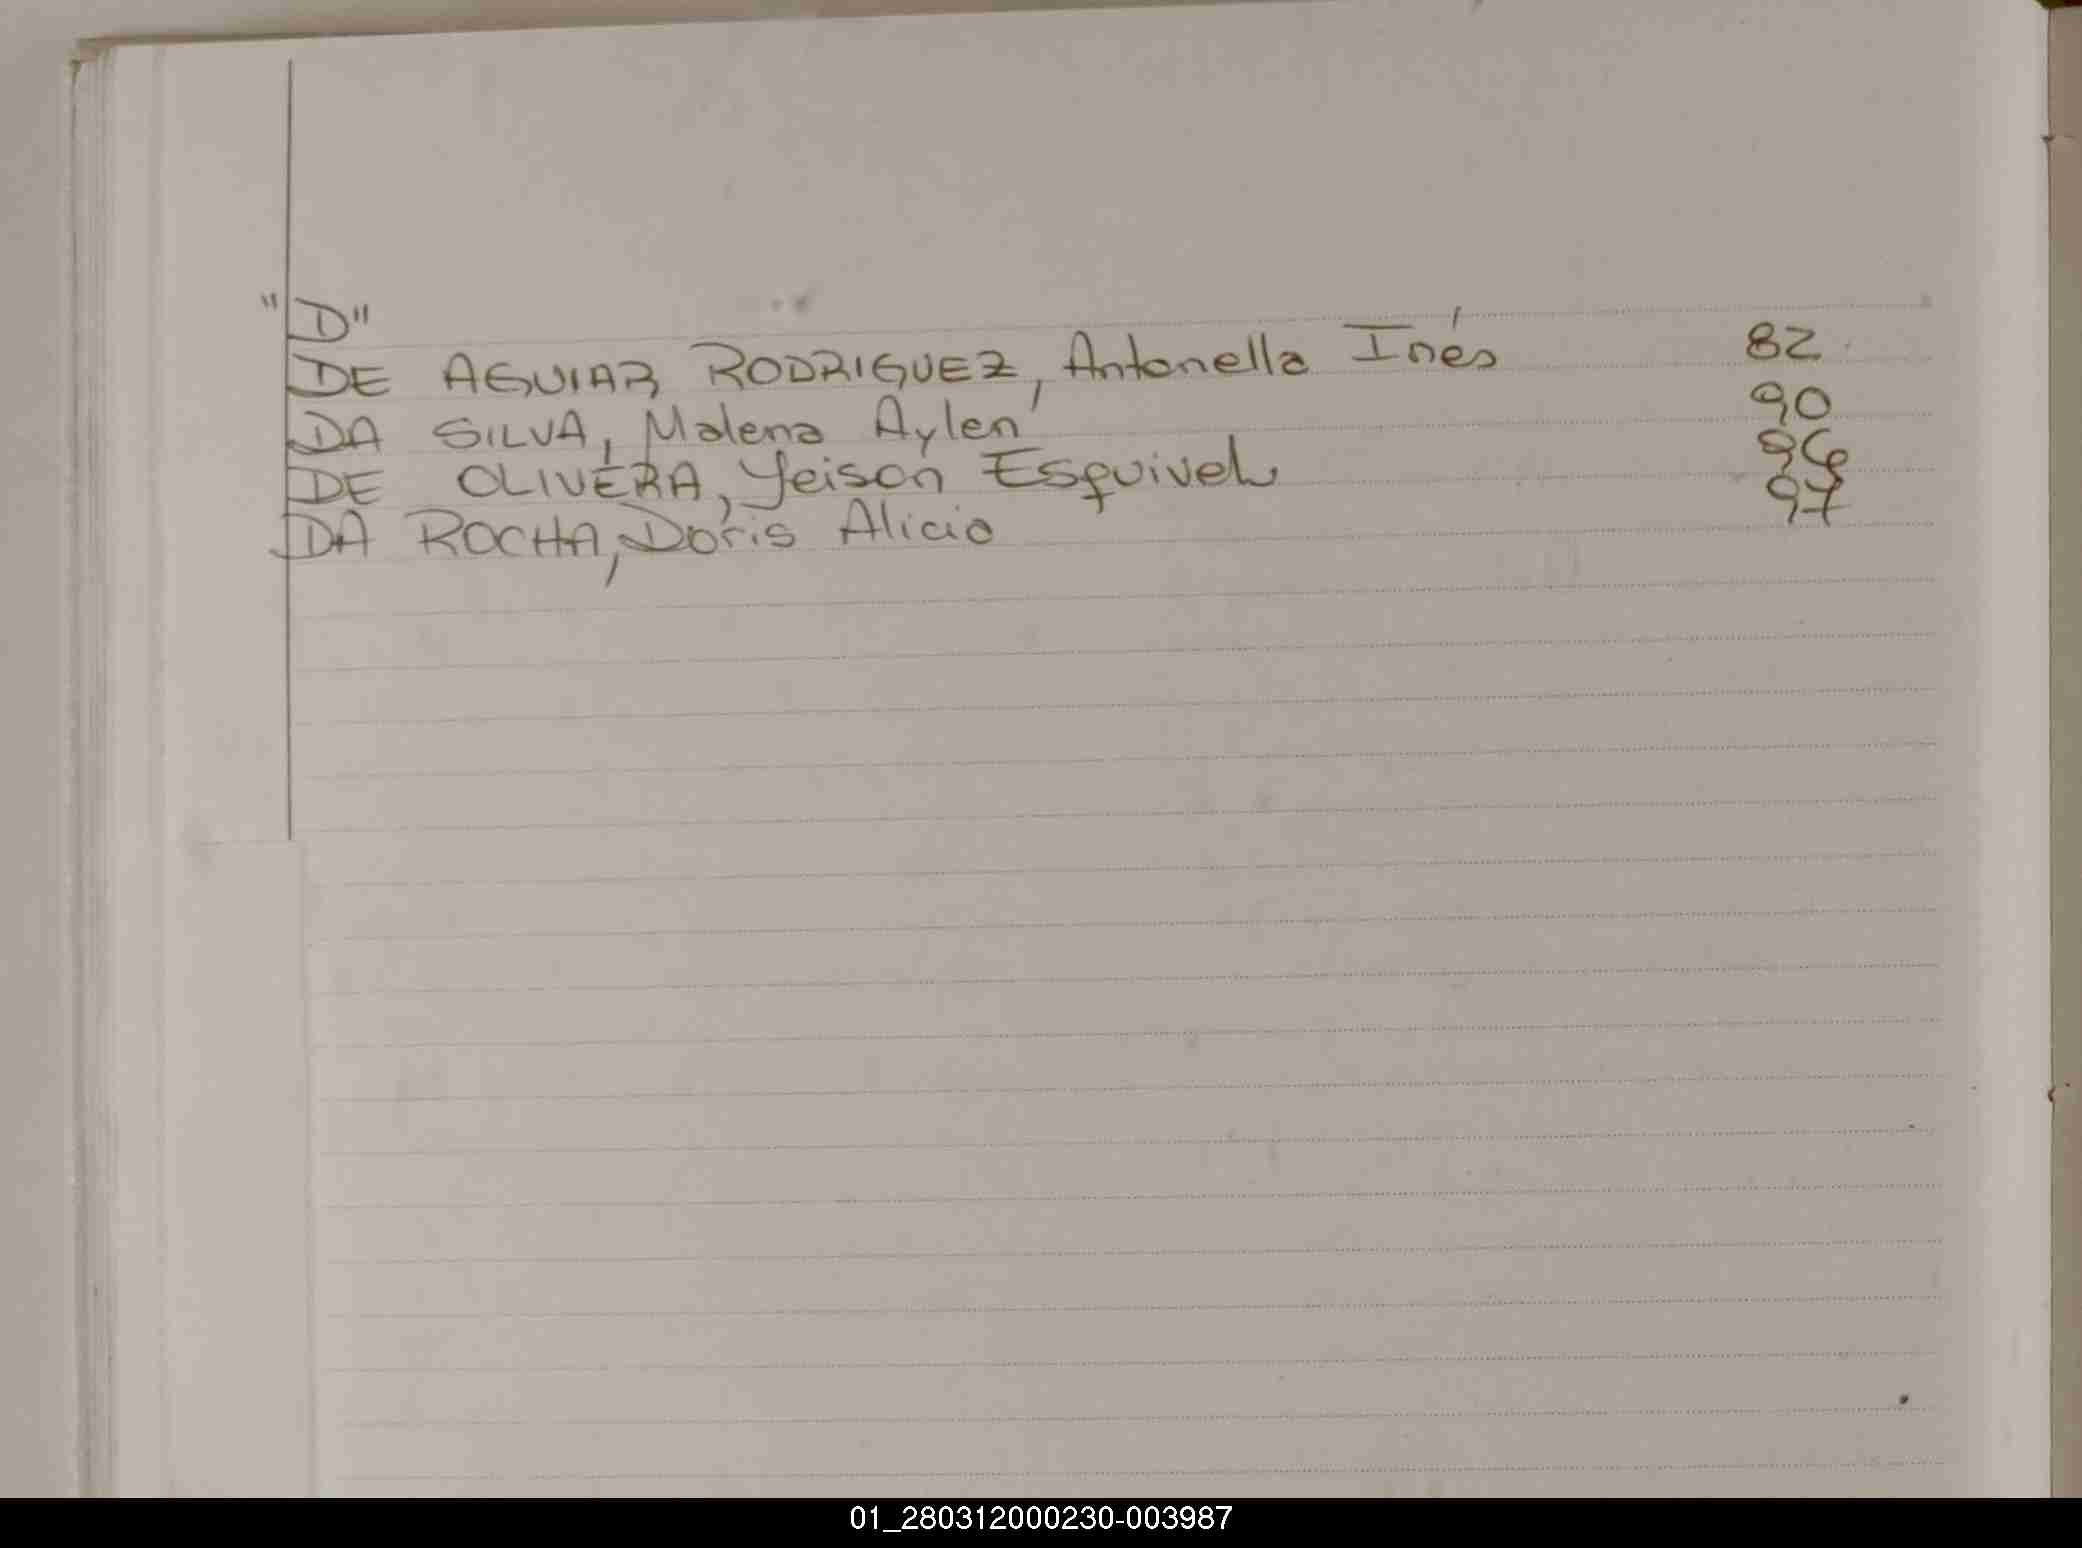 "D"
DE AGUIAR RODRIGUEZ, Antonella Inés 82
DA SILVA, Malena Aylén 90
DE OLIVERA, Yeison Esquivel 96
DA ROCHA, Doris Alicia 97
01_280312000230-003987